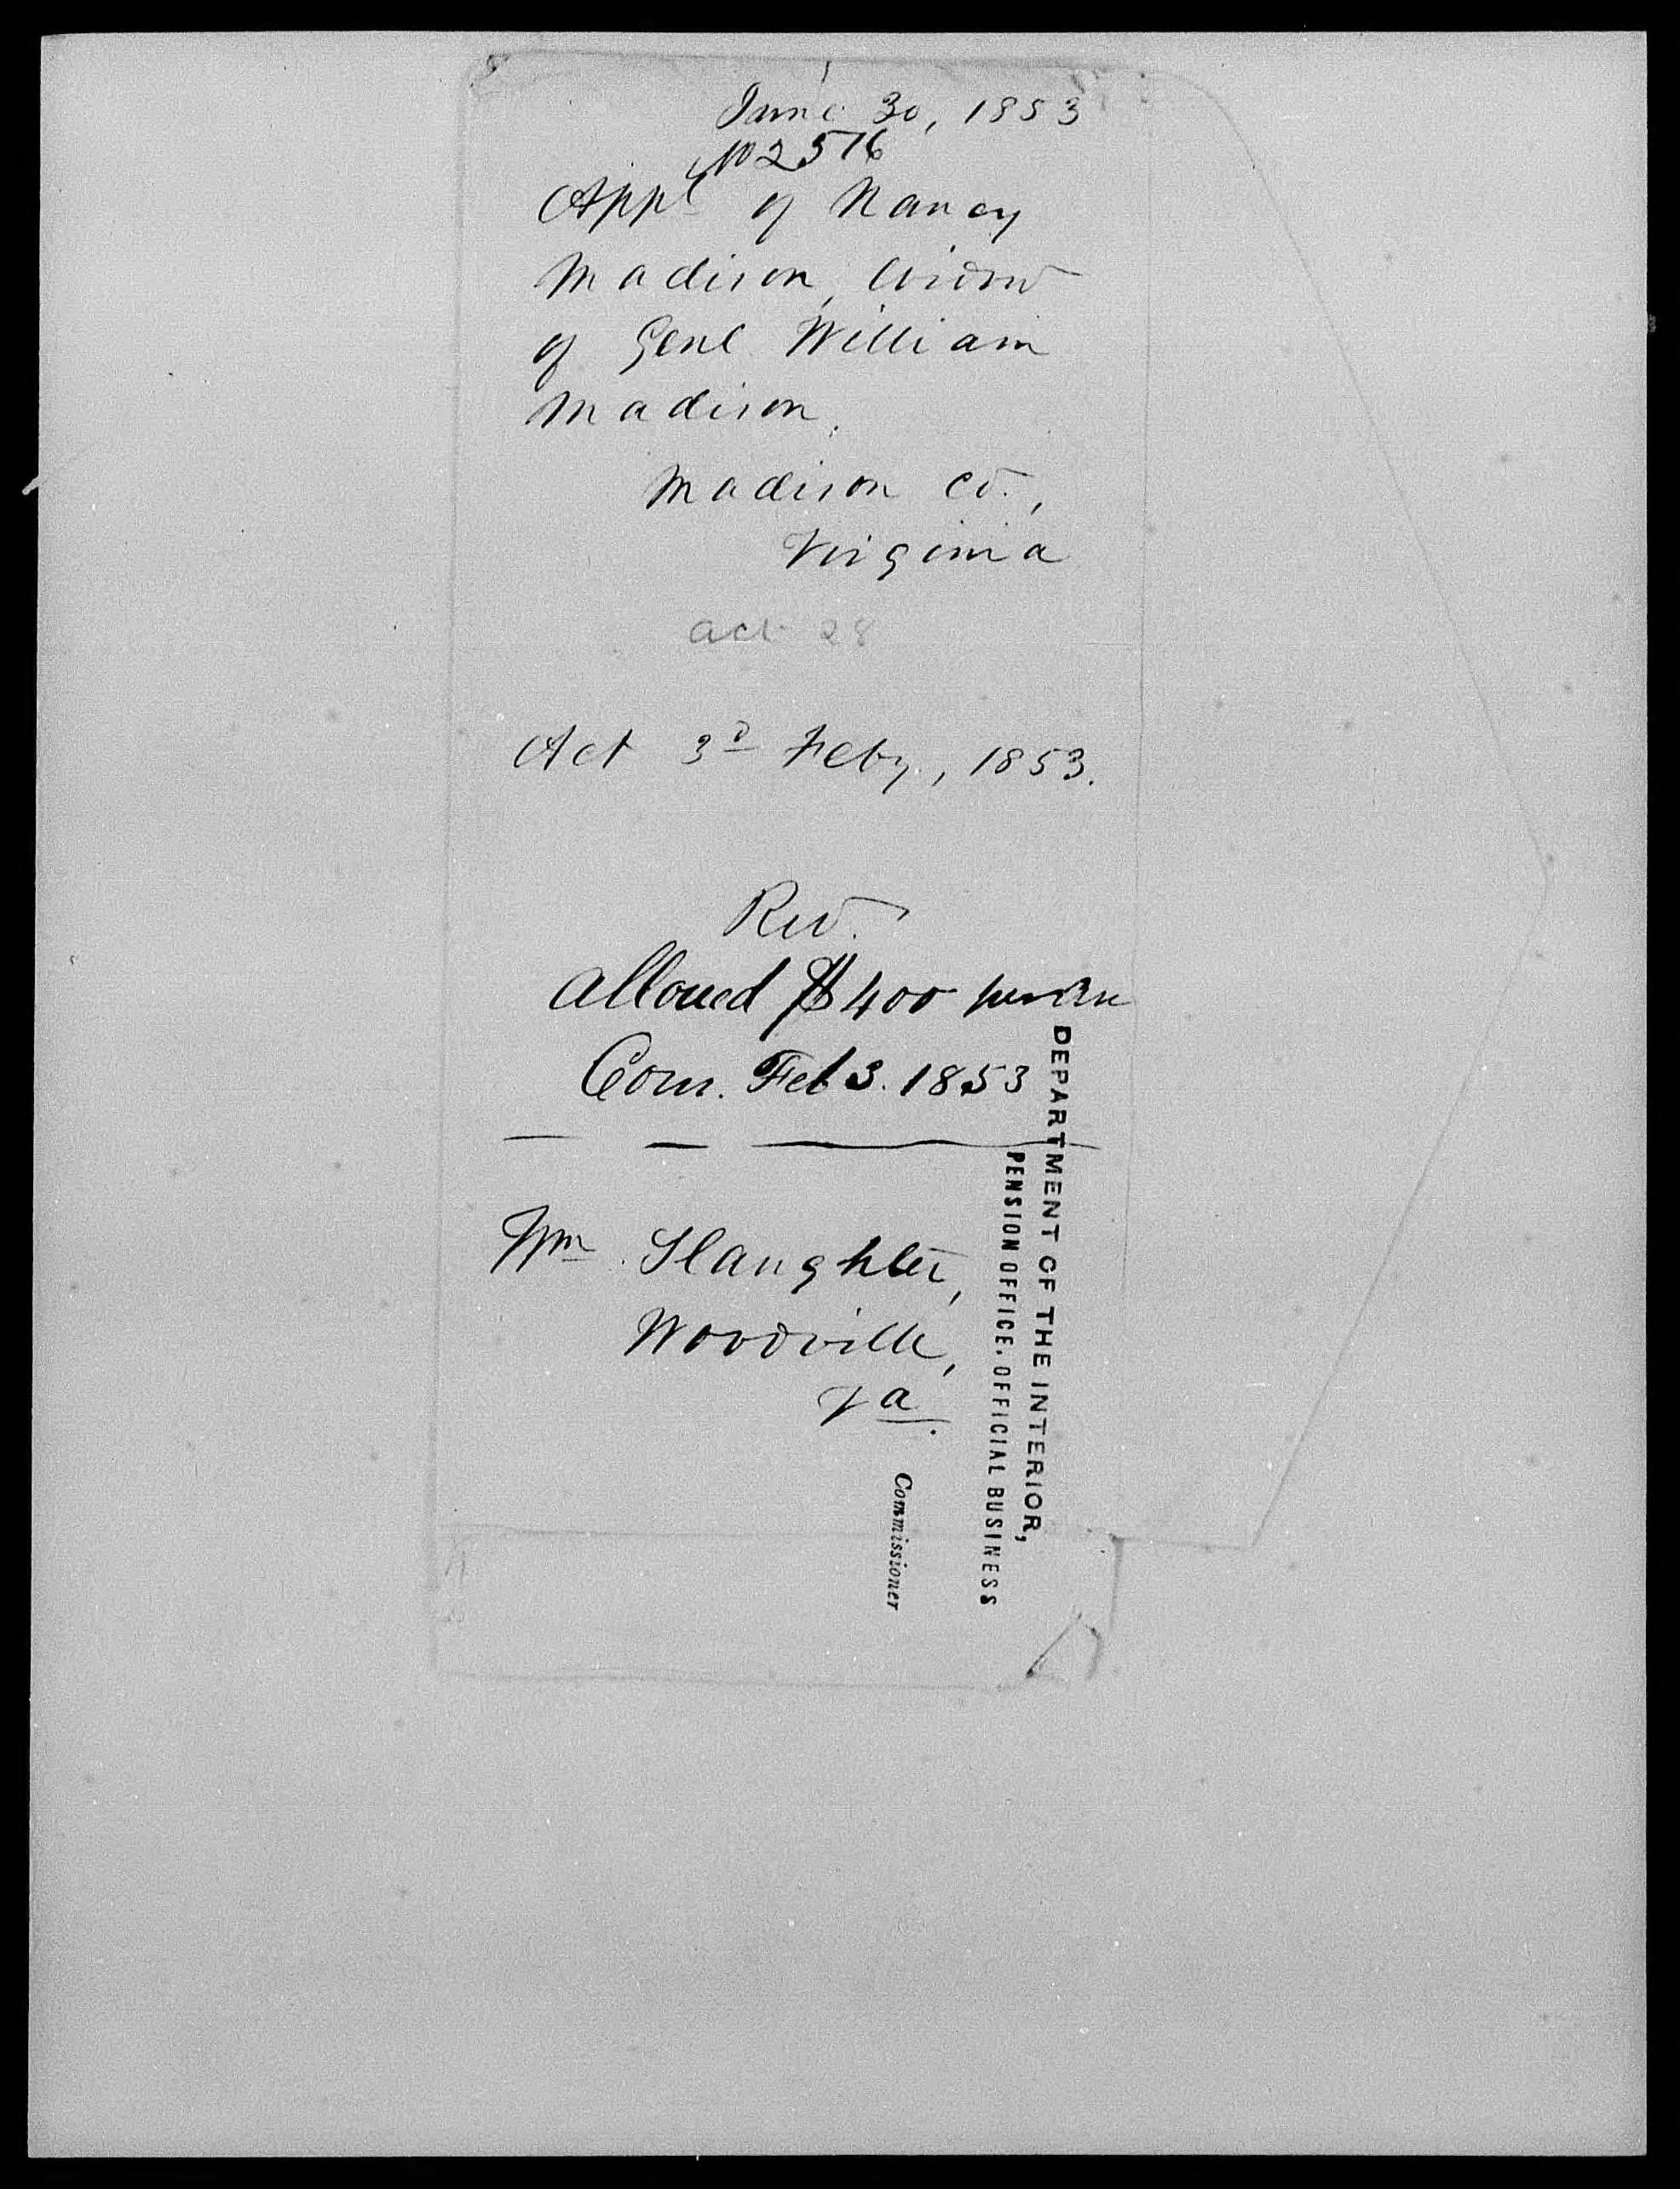 June 30, 1853
No 2576
Appl of Nancy
Madison, Widow
of Genl William
Madison.
Madison Co.,
Virginia
act 28
Act 3d Feby., 1853.
Rev.
allowed $400 per an
Com. Feb 3. 1853
Wm Slaughter,
Woodville,
Va.
DEPARTMENT OF THE INTERIOR,
PENSION OFFICE, OFFICIAL BUSINESS
Commissioner